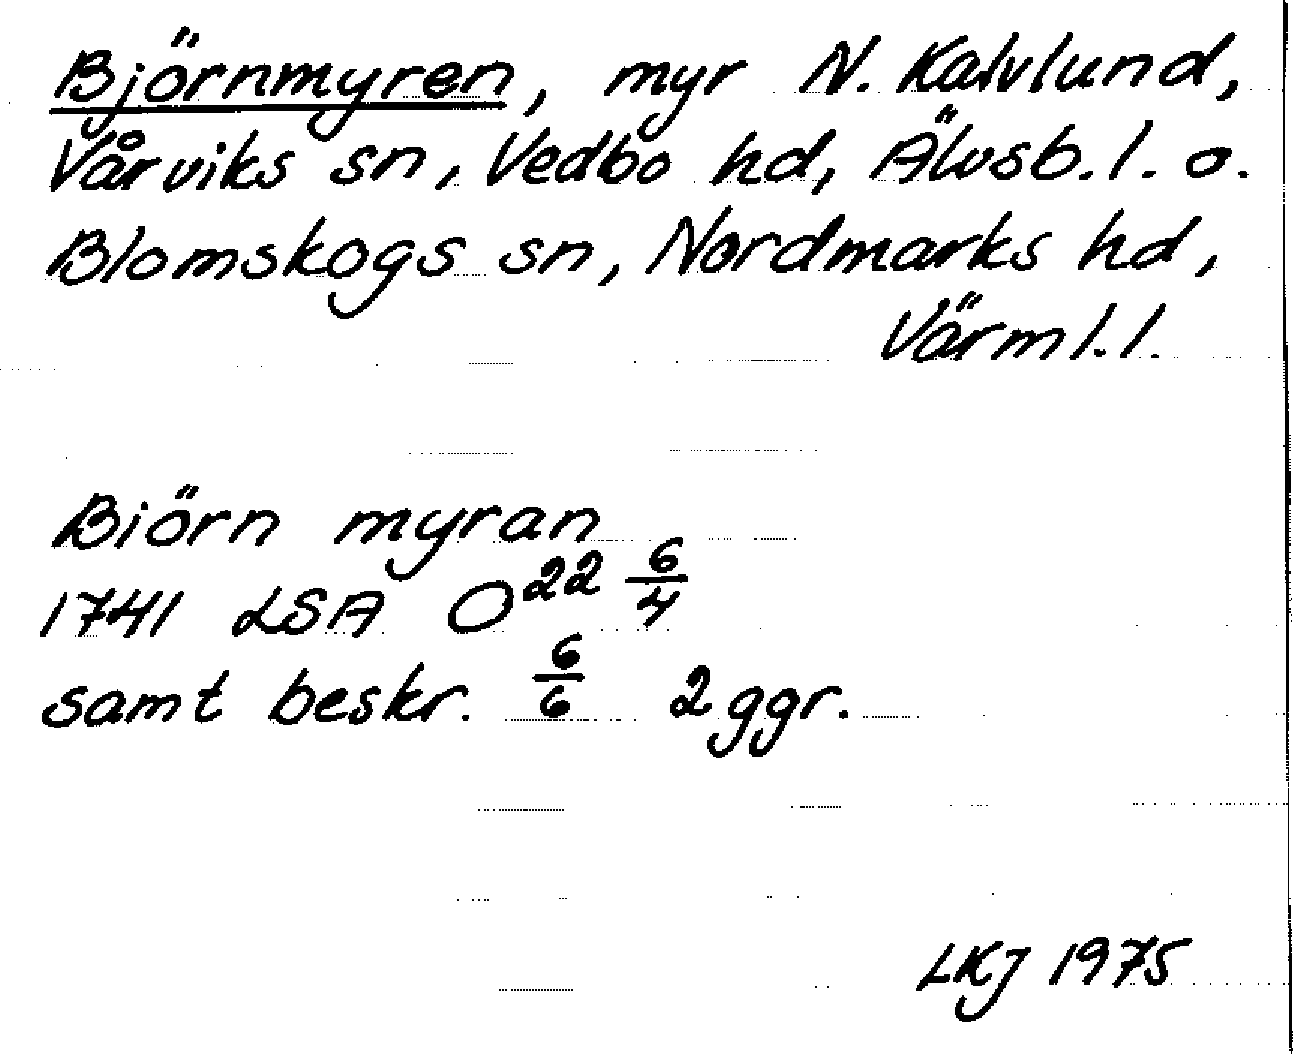 Björnmyren, myr N. Kalvlund,
Vårviks sn, Vedbo hd, Älvsb. l. o.
Blomskogs sn, Nordmarks hd,
Värml. l.
Biörn myran
1741 LSA O²² 6/4
samt beskr. 6/6 2 ggr.
LKJ 1975